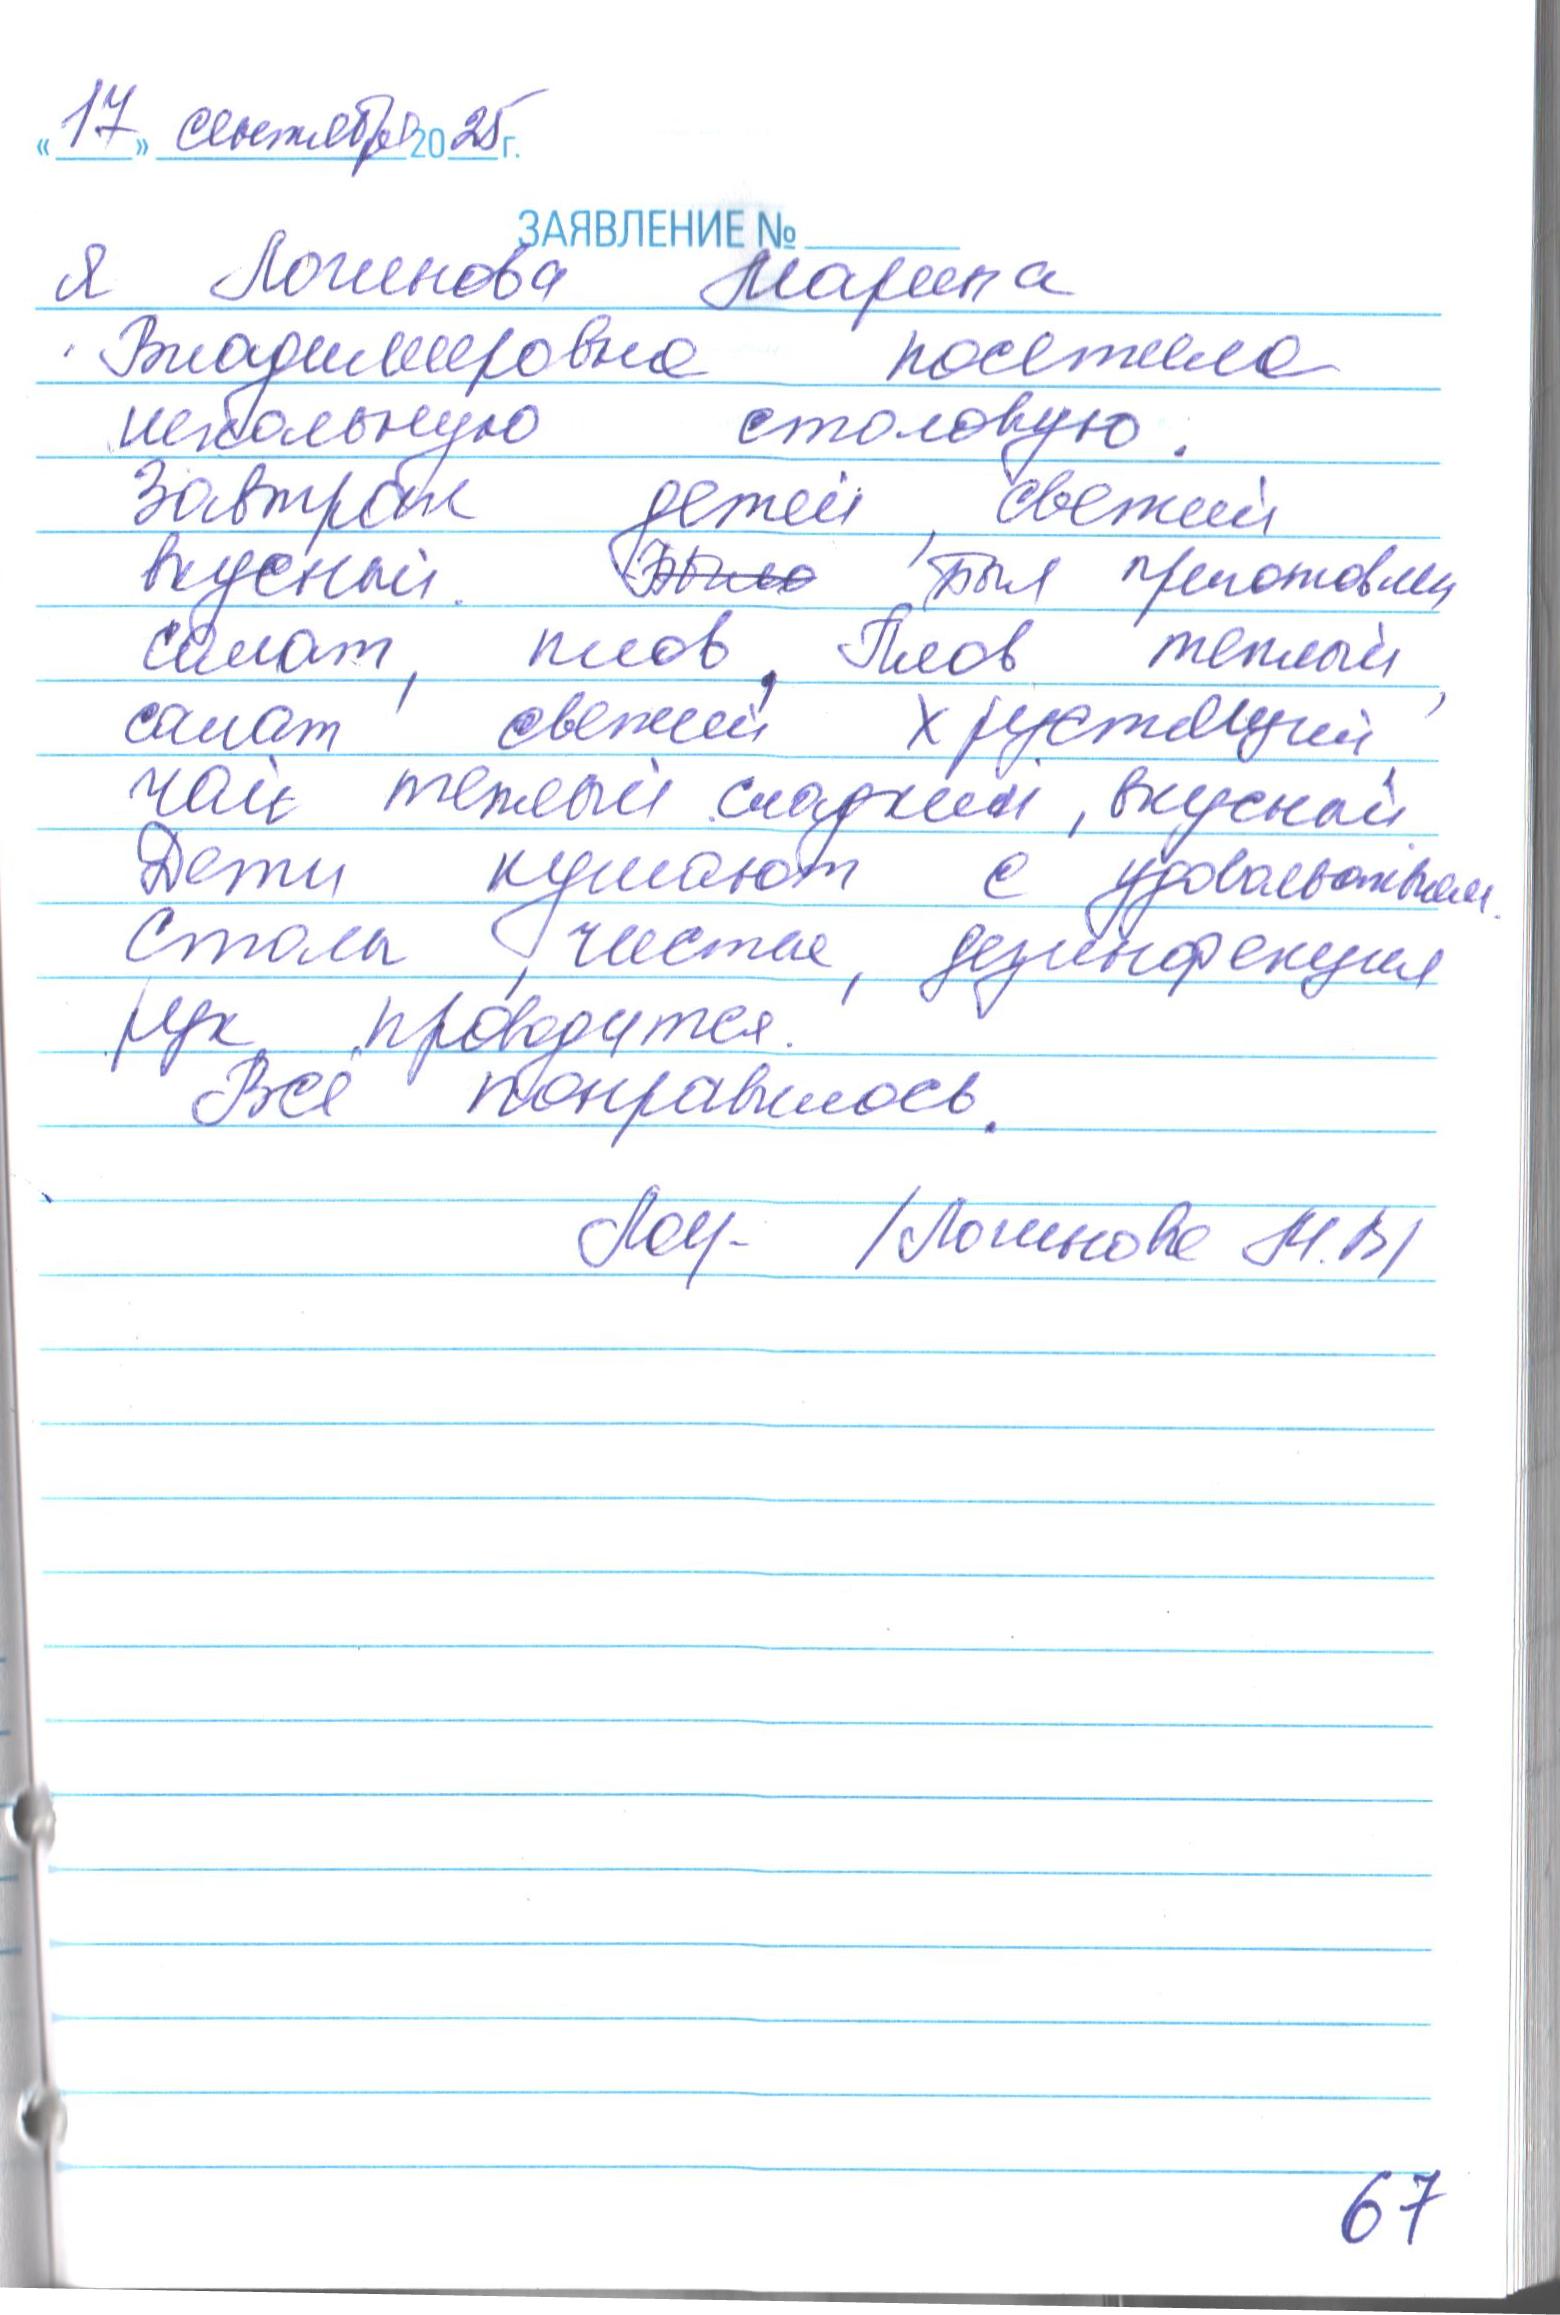 «17» сентября 2025 г.
ЗАЯВЛЕНИЕ №
Я Логинова Марина
Владимировна посетила
школьную столовую.
Завтрак детей, свежий
вкусный. Было Был приготовлен
салат, плов. Плов теплый,
салат свежий хрустящий
чай теплый сладкий, вкусный
Дети кушают с удовольствием.
Столы, чистые, дезинфекция
рук проводится.
Всё понравилось.
/Логинова М.В/
67